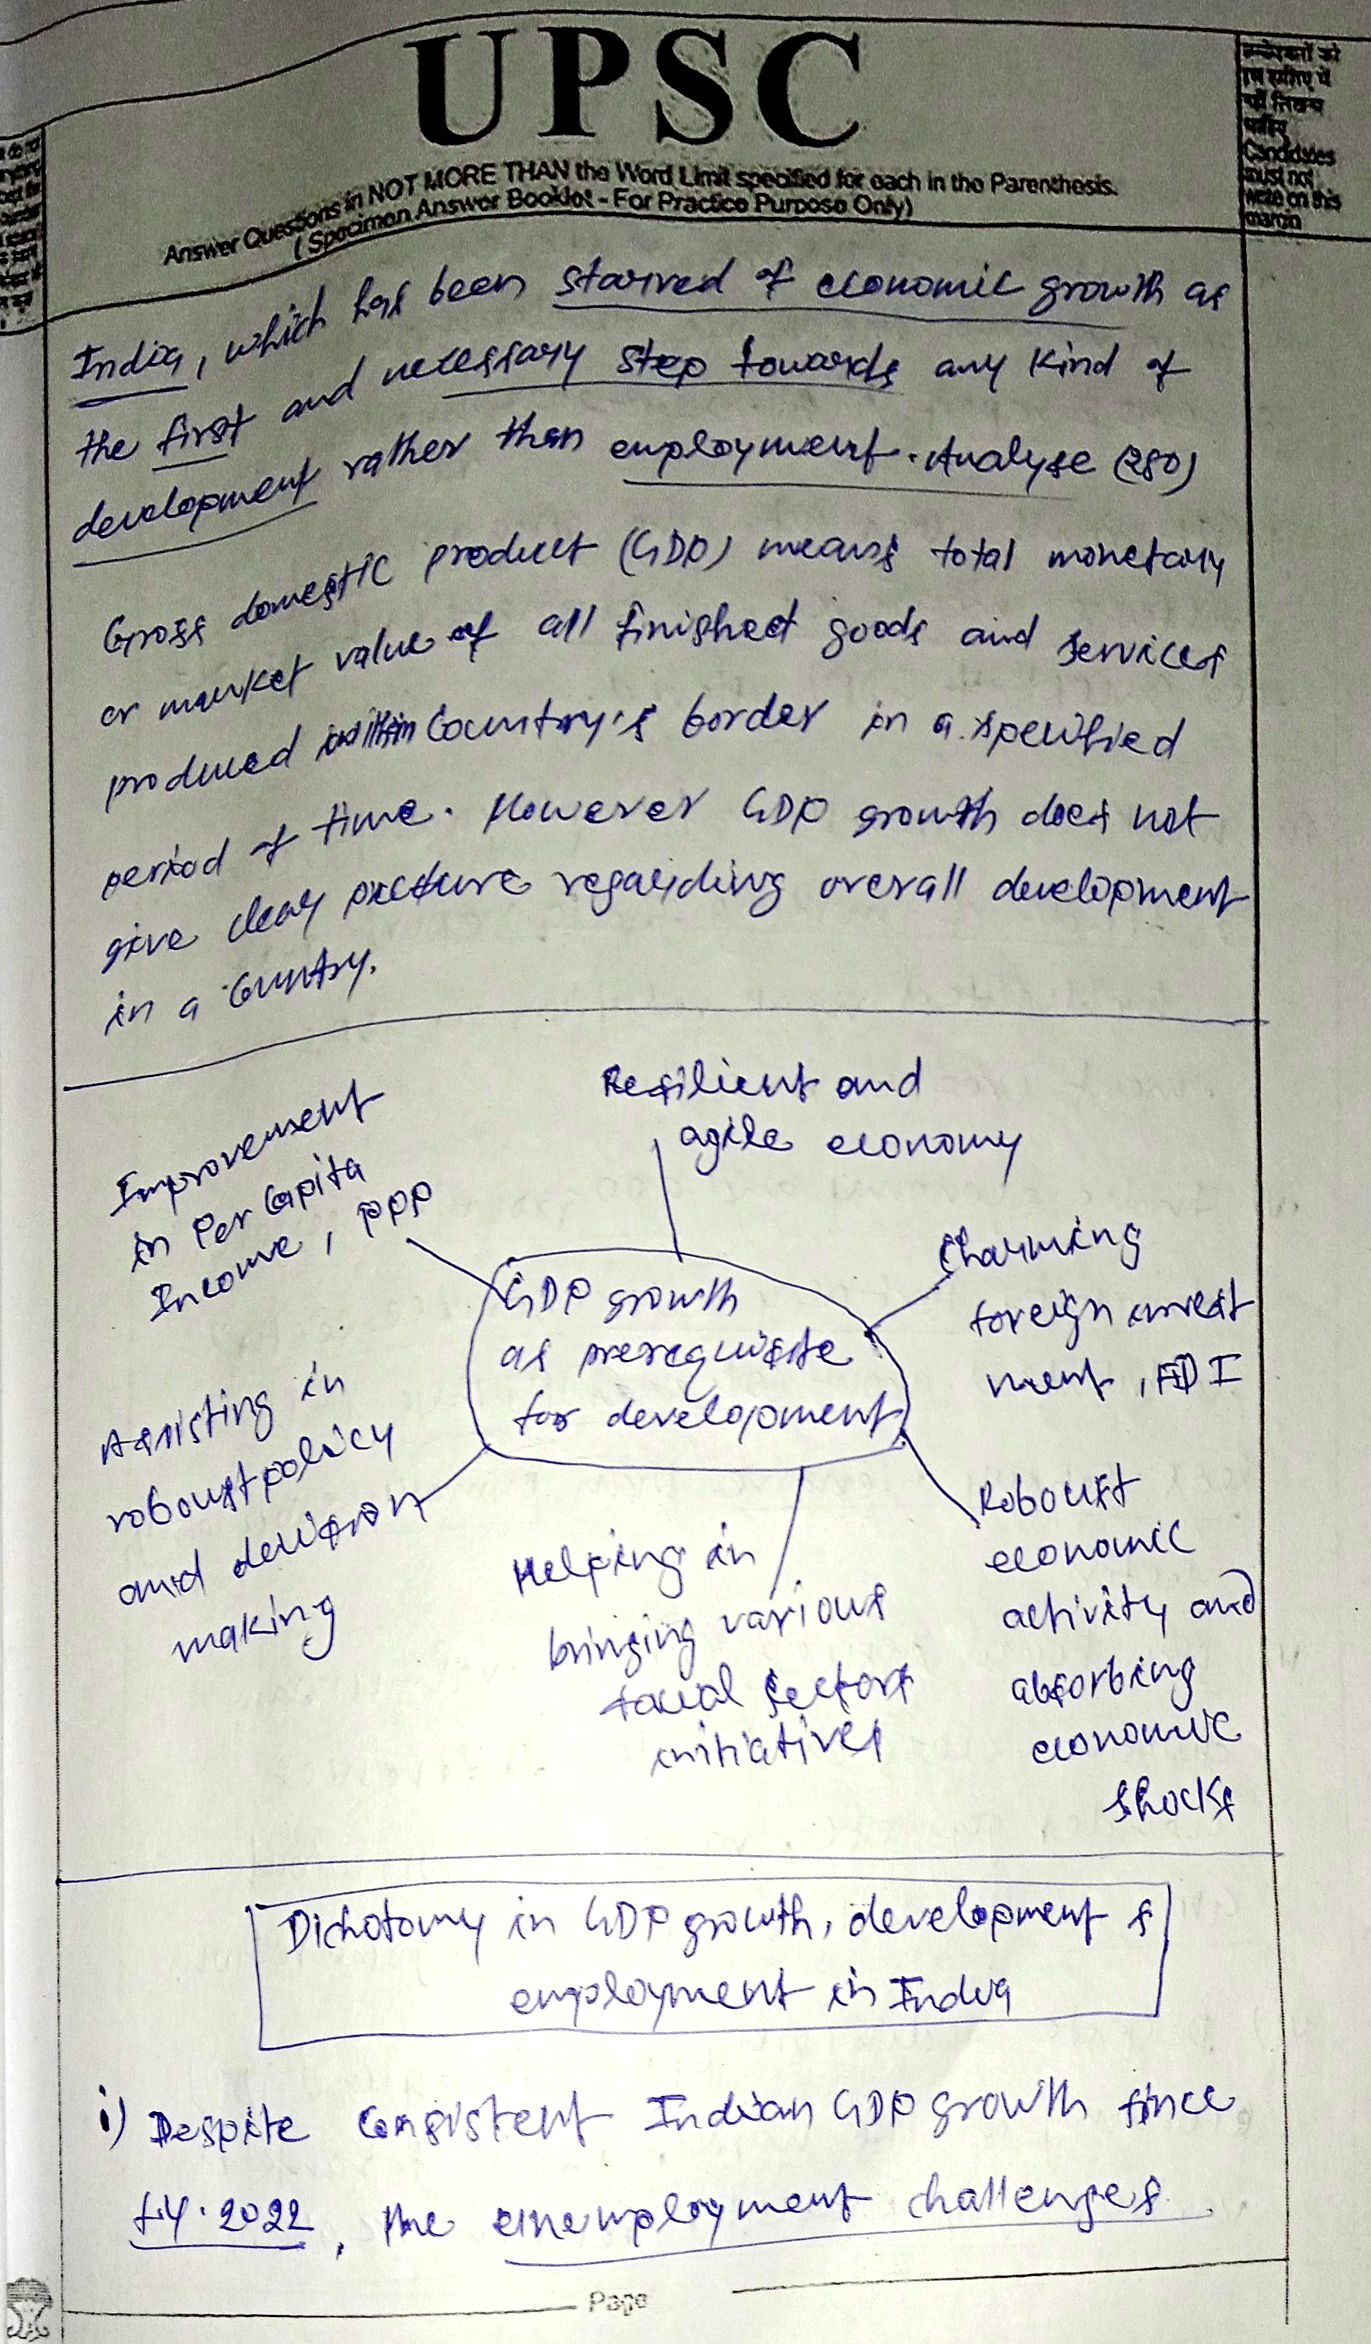 UPSC
Answer Questions in NOT MORE THAN the Word Limit specified for each in the Parenthesis.
(Specimen Answer Booklet - For Practice Purpose Only)
Candidates
must not
write on this
margin
India, which has been starved of economic growth as
the first and necessary step towards any kind of
development rather than employment. Analyse (250)
Gross domestic product (GDP) means total monetary
or market value of all finished goods and services
produced within Country's border in a specified
period of time. However GDP growth does not
give clear picture regarding overall development
in a Country.
Resilient and
agile economy
Improvement
in Per Capita
Income, PPP
Charming
foreign invest
ment, FDI
GDP growth
as prerequisite
for development
Assisting in
roboust policy
and decision
making
Helping in
bringing various
social sectors
initiatives
Roboust
economic
activity and
absorbing
economic
shocks
Dichotomy in GDP growth, development &
employment in India
i) Despite Consistent Indian GDP growth since
f.y. 2022, the unemployment challenges
Page